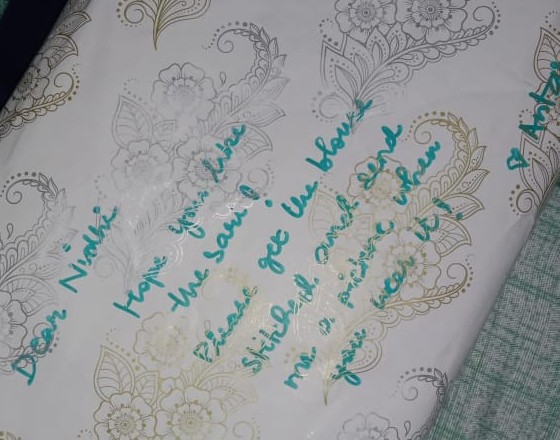 Dear Nidhi
Hope you like
the sari!
Please get the blouse
stitched and send
me a picture when
you wear it!